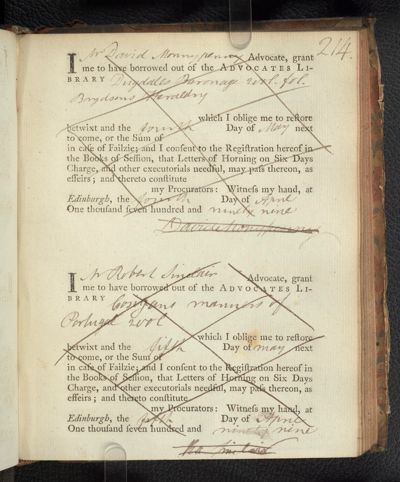 214.
I Mr David Monnypenny Advocate, grant
me to have borrowed out of the ADVOCATES LI-
BRARY Dugdales Baronage 2 vol. fol.
Brydsons Heraldry
which I oblige me to restore
betwixt and the fourth Day of May next
to come, or the Sum of
in case of Failzie; and I consent to the Registration hereof in
the Books of Session, that Letters of Horning on Six Days
Charge, and other executorials needful, may pass thereon, as
effeirs; and thereto constitute
my Procurators: Witness my hand, at
Edinburgh, the fourth Day of April
One thousand seven hundred and ninety nine
David Monypenny
I Mr Robert Sinclair Advocate, grant
me to have borrowed out of the ADVOCATES LI-
BRARY Costigans manners of
Portugal 2 vol
which I oblige me to restore
betwixt and the fifth Day of may next
to come, or the Sum of
in case of Failzie; and I consent to the Registration hereof in
the Books of Session, that Letters of Horning on Six Days
Charge, and other executorials needful, may pass thereon, as
effeirs; and thereto constitute
my Procurators: Witness my hand, at
Edinburgh, the fifth Day of April
One thousand seven hundred and ninety nine